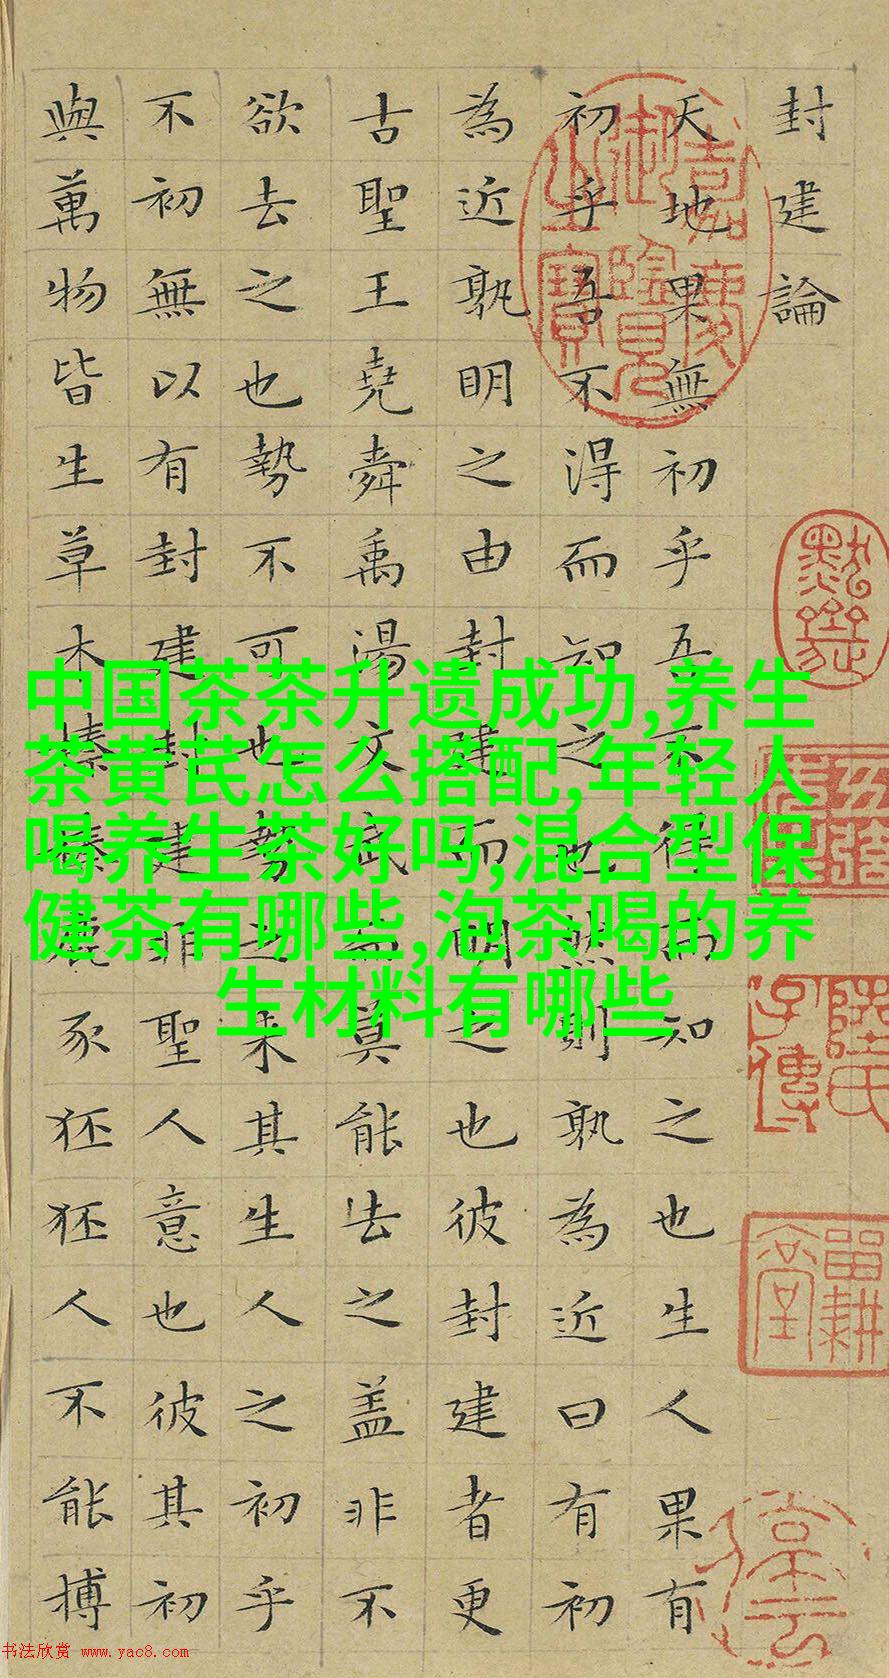 封建論
天地果無初乎吾不得而知之也生人果有
初乎吾不得而知之也然則孰為近曰有初
為近孰明之由封建而明之也彼封建者更
古聖王堯舜禹湯文武而莫能去之蓋非不
欲去之也勢不可也勢之來其生人之初乎
不初無以有封建封建非聖人意也彼其初
與萬物皆生草木榛榛鹿豕狉狉人不能搏
嘉慶御覽之寶
中国茶茶升遗成功,养生
茶黄芪怎么搭配,年轻人
喝养生茶好吗,混合型保
健茶有哪些,泡茶喝的养
生材料有哪些
留耕堂
书法欣赏 www.yac8.com